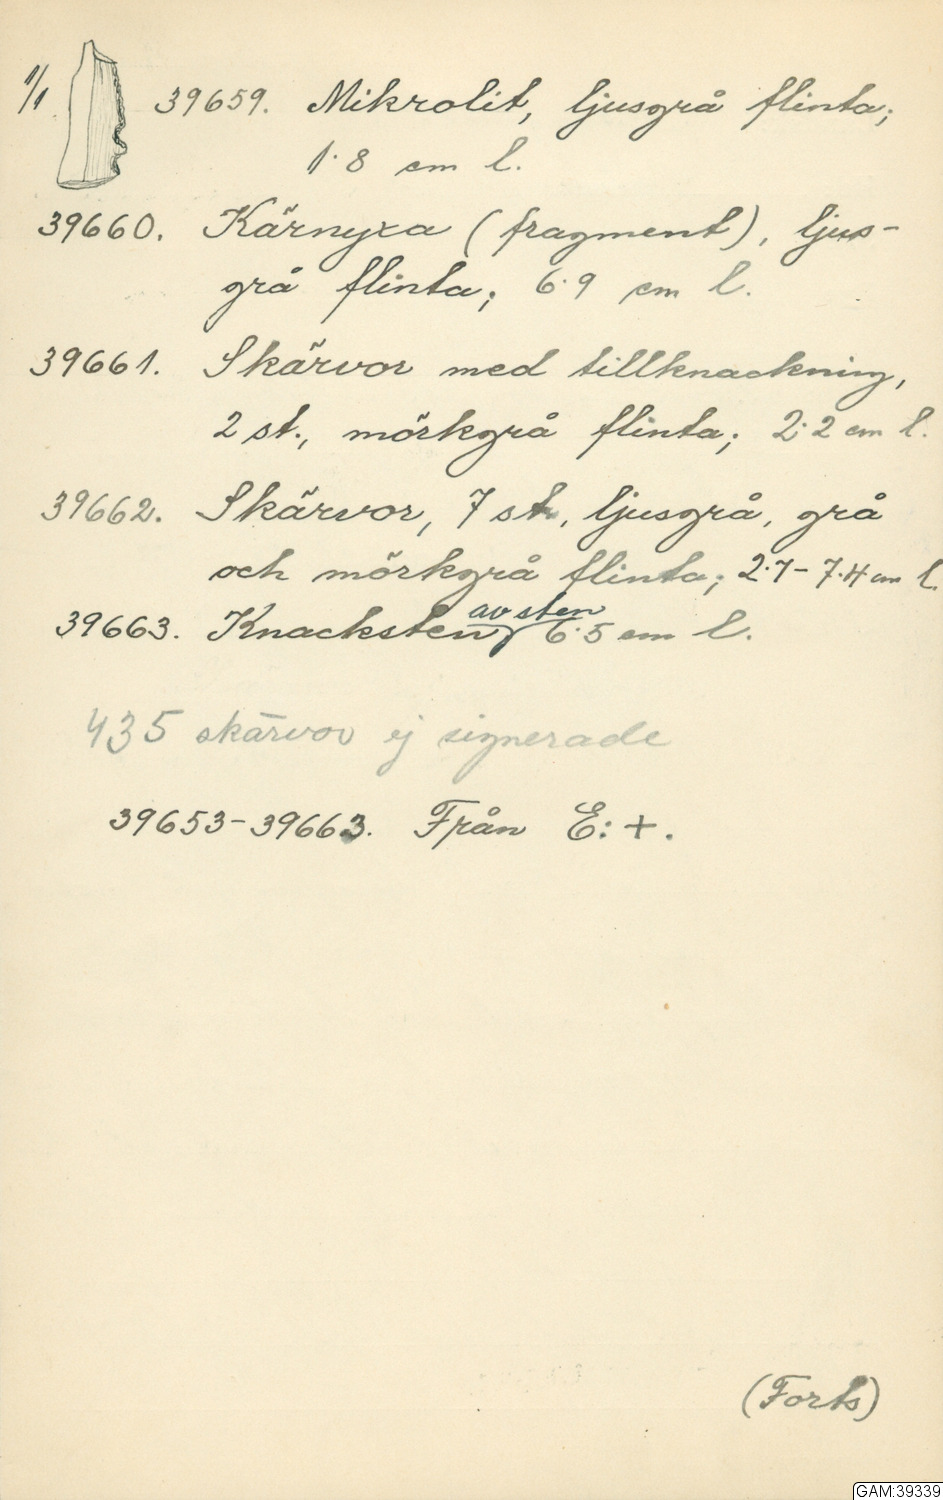 1/1 39659. Mikrolit, ljusgrå flinta;
1·8 cm l.
39660. Kärnyxa (fragment), ljus-
grå flinta; 6·9 cm l.
39661. Skärvor med tillknackning,
2 st., mörkgrå flinta; 2·2 cm l.
39662. Skärvor, 7 st., ljusgrå, grå
och mörkgrå flinta; 2·7-7·4 cm l.
av sten
39663. Knacksten, 6·5 cm l.
435 skärvor ej signerade
39653-39663. Från E:+.
(Forts)
GAM:39339